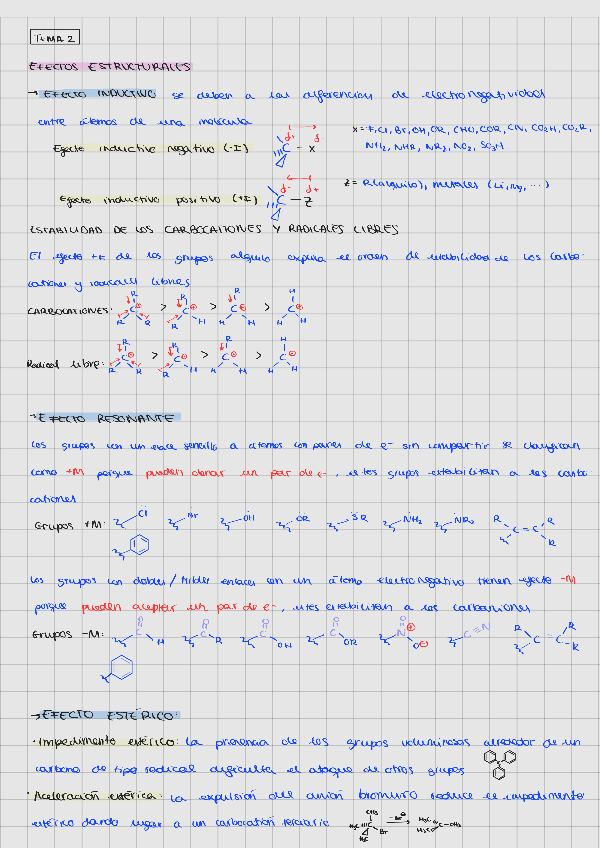 TEMA 2
EFECTOS ESTRUCTURALES
→ EFECTO INDUCTIVO se deben a las diferencias de electronegatividad
entre átomos de una molécula
Efecto inductivo negativo (-I) C - X X = F, Cl, Br, OH, OR, CHO, COR, CN, CO₂H, CO₂R,
NH₂, NHR, NR₂, NO₂, SO₃H
Efecto inductivo positivo (+I) C - Z Z = R(alquilo), metales (Li, Mg, ...)
ESTABILIDAD DE LOS CARBOCATIONES Y RADICALES LIBRES
El efecto +I de los grupos alquilo explica el orden de estabilidad de los carbo-
cationes y radicales libres
CARBOCATIONES: > > >
Radical libre: > > >
→ EFECTO RESONANTE
Los grupos con un enlace sencillo a átomos con pares de e⁻ sin compartir se clasifican
como +M porque pueden donar un par de e⁻, estos grupos estabilizan a los carbo-
cationes
Grupos +M: Cl Br OH OR SR NH₂ NR₂ R C = C R R
Los grupos con dobles/triples enlaces con un átomo electronegativo tienen efecto -M
porque pueden aceptar un par de e⁻, estos estabilizan a los carbaniones
Grupos -M: O C H O C R O C OH O C OR O N⊕ O⊖ C≡N R C = C R R
→ EFECTO ESTÉRICO:
· Impedimento estérico: La presencia de los grupos voluminosos alrededor de un
carbono de tipo radical dificulta el ataque de otros grupos
· Aceleración estérica: La expulsión del anión bromuro reduce el impedimento
estérico dando lugar a un carbocatión terciario CH₃ H₃C C Br H₃C -Br⊖ → H₃C H₃C C - CH₃